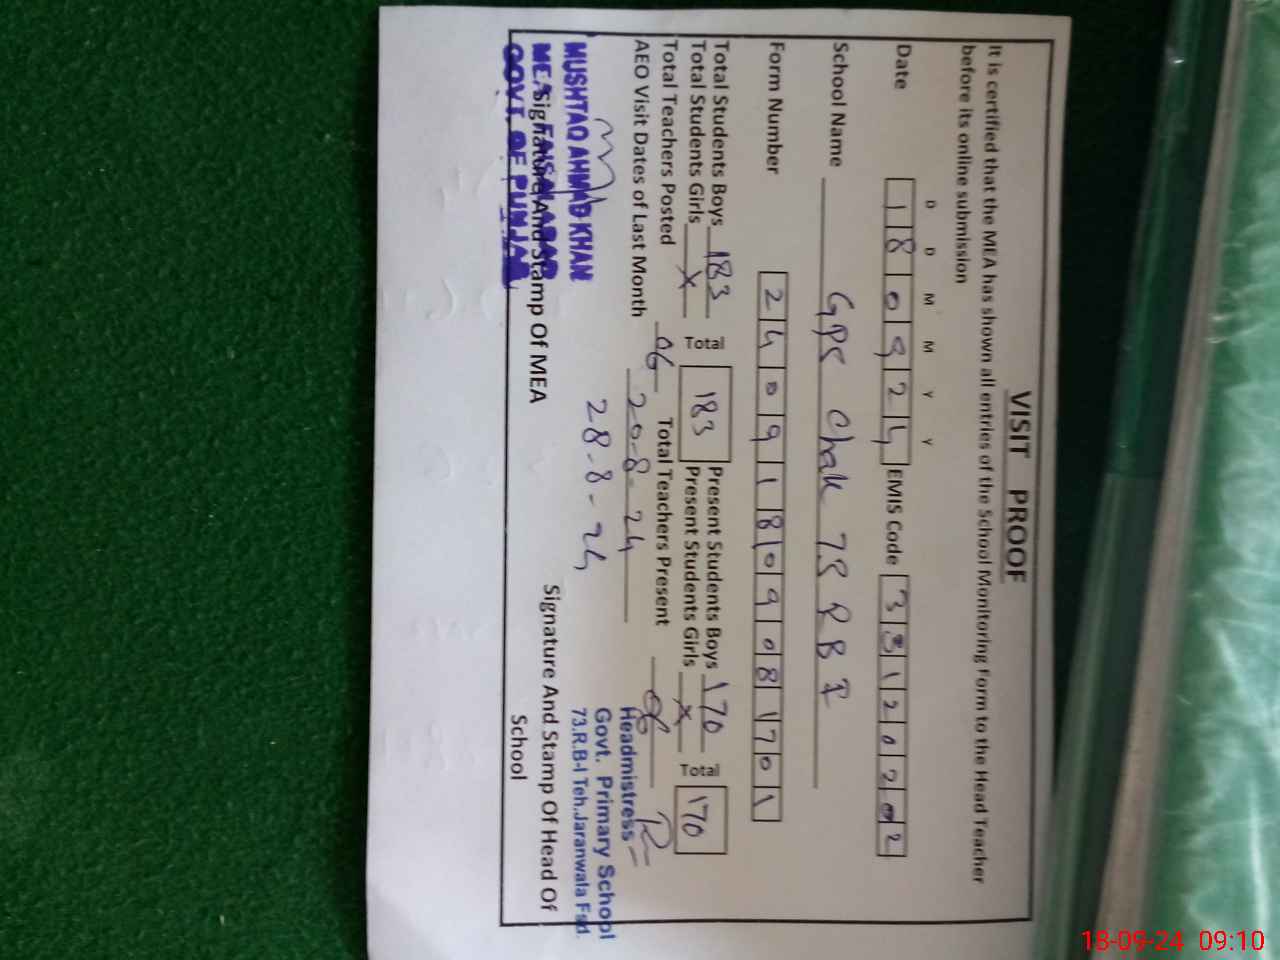 VISIT PROOF
It is certified that the MEA has shown all entries of the School Monitoring Form to the Head Teacher
before its online submission
D D M M Y Y
Date 1 8 0 9 2 4 EMIS Code 3 3 1 2 0 2 0 2
School Name GPS Chak 73 RB I
Form Number 2 4 0 9 1 8 0 9 0 8 1 7 0 1
Total Students Boys 183 Total 183 Present Students Boys 170 Total 170
Total Students Girls X Present Students Girls X
Total Teachers Posted 06 Total Teachers Present 06
AEO Visit Dates of Last Month 20-8-24
28-8-24
Headmistress
Govt. Primary School
73.R.B-I Teh.Jaranwala Fsd.
MUSHTAQ AHMAD KHAN
MEA FAISALABAD
GOVT. OF PUNJAB
Signature And Stamp Of MEA
Signature And Stamp Of Head Of
School
18-09-24 09:10